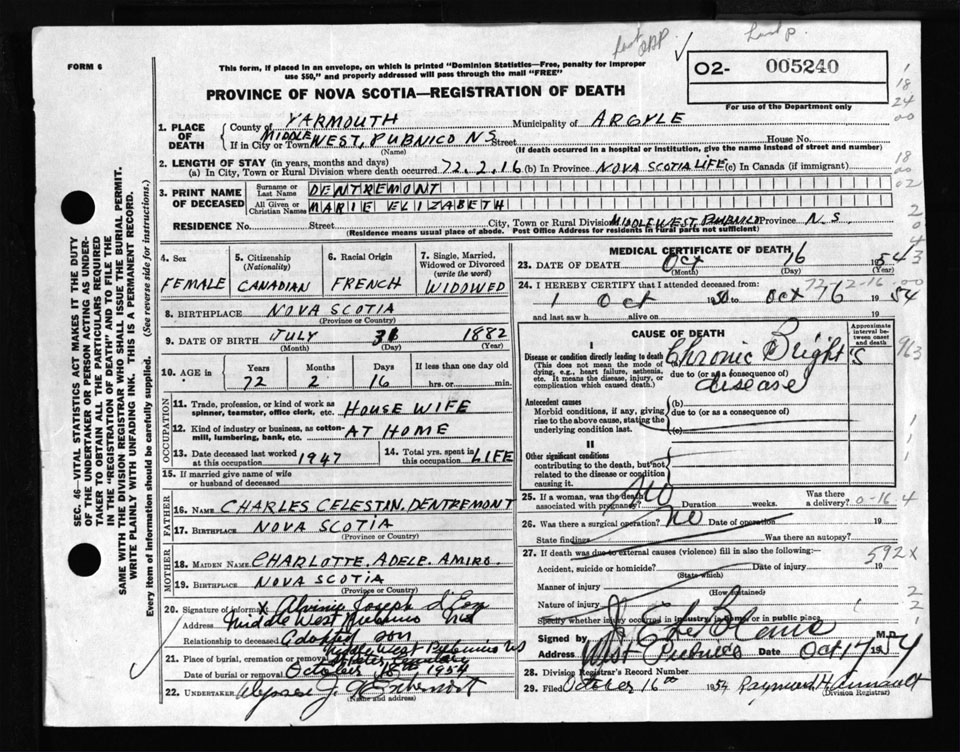 Last p.
FORM 6
This form, if placed in an envelope, on which is printed "Dominion Statistics—Free, penalty for improper
use $50," and properly addressed will pass through the mail "FREE"
O2- 005240
For use of the Department only
PROVINCE OF NOVA SCOTIA—REGISTRATION OF DEATH
1. PLACE OF DEATH
County of YARMOUTH Municipality of ARGYLE
If in City or Town MIDDLE WEST, PUBNICO N.S Street House No.
(Name) (If death occurred in a hospital or institution, give the name instead of street and number)
2. LENGTH OF STAY (in years, months and days)
(a) In City, Town or Rural Division where death occurred 72.2.16 (b) In Province NOVA SCOTIA LIFE (c) In Canada (if immigrant)
3. PRINT NAME OF DECEASED
Surname or Last Name DENTREMONT
All Given or Christian Names MARIE ELIZABETH
RESIDENCE No. Street City, Town or Rural Division MIDDLE WEST PUBNICO Province N.S.
(Residence means usual place of abode. Post Office Address for residents in rural parts not sufficient)
SEC. 46—VITAL STATISTICS ACT MAKES IT THE DUTY
OF THE UNDERTAKER OR PERSON ACTING AS UNDER-
TAKER TO OBTAIN ALL THE PARTICULARS REQUIRED
IN THE "REGISTRATION OF DEATH" AND TO FILE THE
SAME WITH THE DIVISION REGISTRAR WHO SHALL ISSUE THE BURIAL PERMIT.
WRITE PLAINLY WITH UNFADING INK. THIS IS A PERMANENT RECORD.
Every item of information should be carefully supplied. (See reverse side for instructions.)
4. Sex FEMALE
5. Citizenship (Nationality) CANADIAN
6. Racial Origin FRENCH
7. Single, Married, Widowed or Divorced (write the word) WIDOWED
8. BIRTHPLACE NOVA SCOTIA
(Province or Country)
9. DATE OF BIRTH JULY 31 1882
(Month) (Day) (Year)
10. AGE in Years Months Days If less than one day old
72 2 16 hrs. or min.
OCCUPATION
11. Trade, profession, or kind of work as
spinner, teamster, office clerk, etc. HOUSE WIFE
12. Kind of industry or business, as cotton-
mill, lumbering, bank, etc. AT HOME
13. Date deceased last worked at this occupation 1947
14. Total yrs. spent in this occupation LIFE
15. If married give name of wife
or husband of deceased
FATHER
16. NAME CHARLES CELESTIN. DENTREMONT
17. BIRTHPLACE NOVA SCOTIA
(Province or Country)
MOTHER
18. MAIDEN NAME CHARLOTTE. ADELE. AMIRO.
19. BIRTHPLACE NOVA SCOTIA
(Province or Country)
20. Signature of informant X Joseph d'Eon
Address Middle West Pubnico NS
Relationship to deceased Adopted son
21. Place of burial, cremation or removal Middle West Pubnico NS
Date of burial or removal October 18th 1954
22. UNDERTAKER J. d'Entremont
(Name and address)
MEDICAL CERTIFICATE OF DEATH
23. DATE OF DEATH Oct 16 1954
(Month) (Day) (Year)
24. I HEREBY CERTIFY that I attended deceased from:
1 Oct 1950 to Oct 16 1954
and last saw h alive on 19
CAUSE OF DEATH
Approximate interval between onset and death
I
Disease or condition directly leading to death
(This does not mean the mode of dying, e.g., heart failure, asthenia, etc. It means the disease, injury, or complication which caused death.)
(a) Chronic Bright's
due to (or as a consequence of)
disease
Antecedent causes
Morbid conditions, if any, giving rise to the above cause, stating the underlying condition last.
(b)
due to (or as a consequence of)
(c)
II
Other significant conditions
contributing to the death, but not related to the disease or condition causing it.
25. If a woman, was the death associated with pregnancy? No Duration weeks. Was there a delivery?
26. Was there a surgical operation? No Date of operation 19
State findings Was there an autopsy?
27. If death was due to external causes (violence) fill in also the following:—
Accident, suicide or homicide? Date of injury 19
(State which)
Manner of injury
(How sustained)
Nature of injury
Specify whether injury occurred in industry, in home, or in public place.
Signed by M.D.
Address West Pubnico Date Oct 17 1954
28. Division Registrar's Record Number
29. Filed October 16th 1954
(Division Registrar)
592X